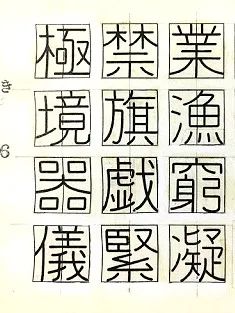 極禁業
境旗漁
器戯窮
儀緊凝